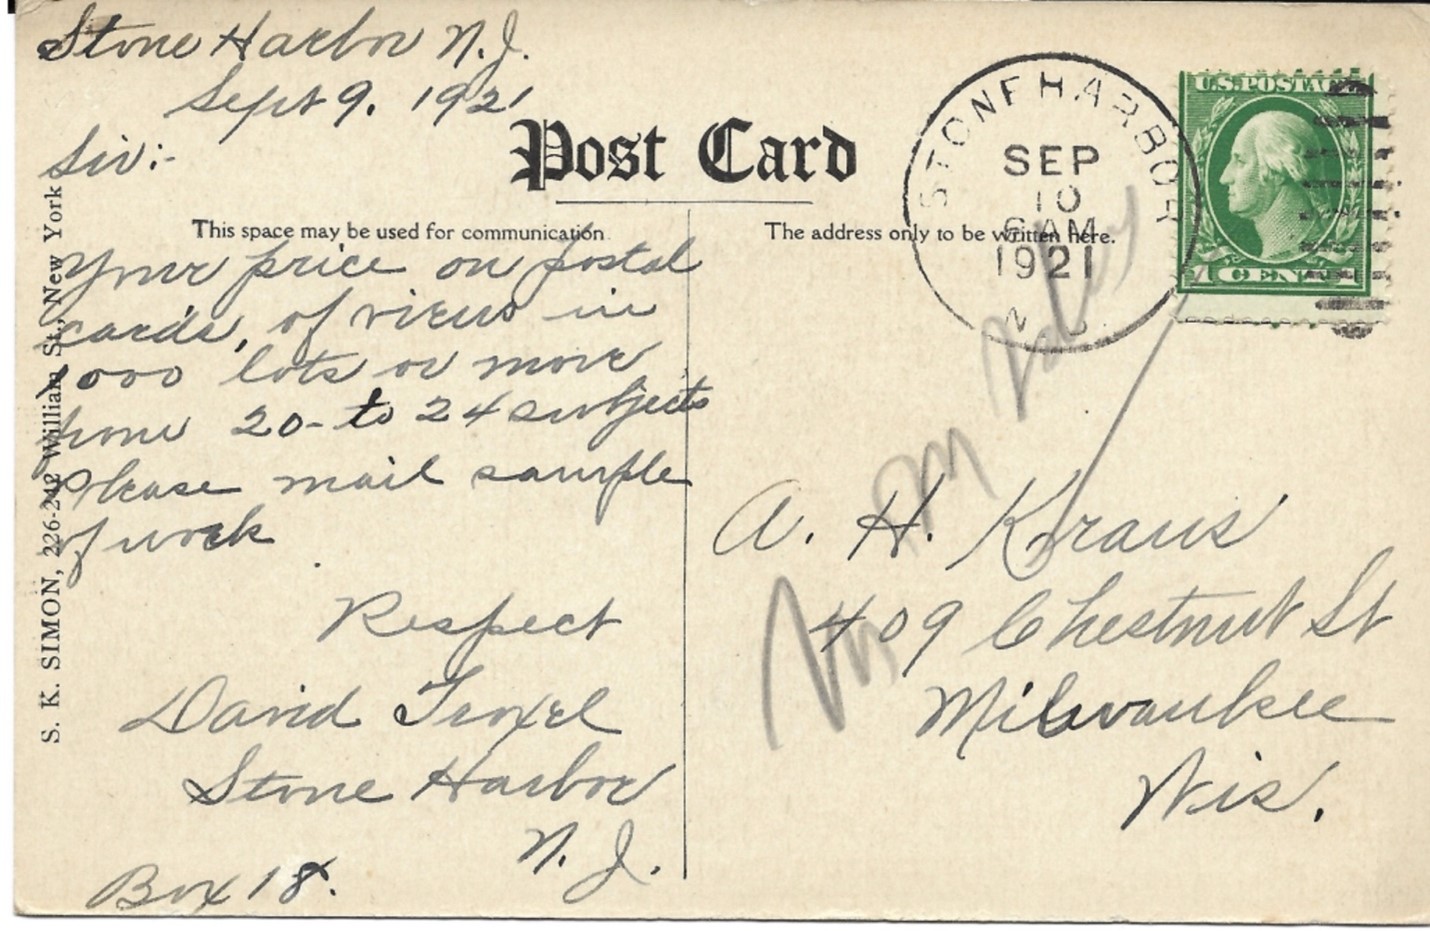 Stone Harbor N.J.
Sept 9. 1921
Sir:-
Post Card
This space may be used for communication
The address only to be written here.
Your price on postal
cards, of views in
1000 lots or more
have 20- to 24 subjects
Please mail sample
of work
Respect
David Troxel
Stone Harbor
N. J.
Box 18.
S. K. SIMON, 226-242 William St., New York
STONE HARBOR
SEP
10
6 AM
1921
N. J.
U.S. POSTAGE
1 CENT 1
A. H. Kraus
409 Chestnut St
Milwaukee
Wis.